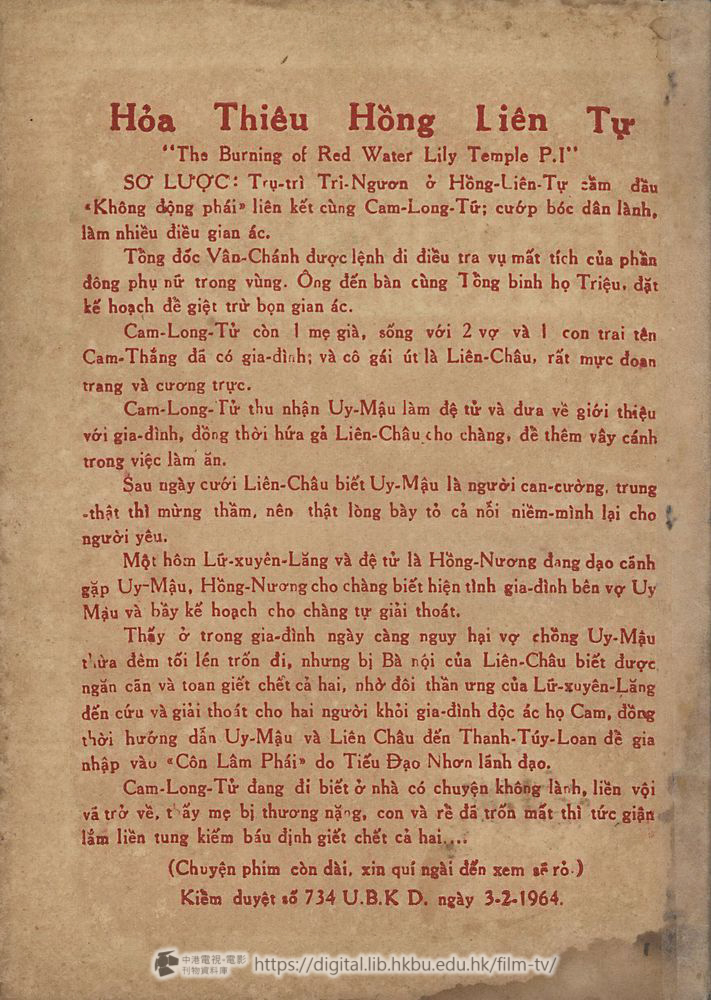 Hỏa Thiêu Hồng Liên Tự
"The Burning of Red Water Lily Temple P.I"
SƠ LƯỢC: Trụ-trì Tri-Ngươn ở Hồng-Liên-Tự cầm đầu
«Không động phái» liên kết cùng Cam-Long-Tử; cướp bóc dân lành,
làm nhiều điều gian ác.
Tổng đốc Vân-Chánh được lệnh đi điều tra vụ mất tích của phần
đông phụ nữ trong vùng. Ông đến bàn cùng Tổng binh họ Triệu, đặt
kế hoạch để giệt trừ bọn gian ác.
Cam-Long-Tử còn 1 mẹ già, sống với 2 vợ và 1 con trai tên
Cam-Thắng đã có gia-đình; và cô gái út là Liên-Châu, rất mực đoan
trang và cương trực.
Cam-Long-Tử thu nhận Uy-Mậu làm đệ tử và đưa về giới thiệu
với gia-đình, đồng thời hứa gả Liên-Châu cho chàng, để thêm vây cánh
trong việc làm ăn.
Sau ngày cưới Liên-Châu biết Uy-Mậu là người can-cường, trung
-thật thì mừng thầm, nên thật lòng bày tỏ cả nỗi niềm-mình lại cho
người yêu.
Một hôm Lữ-xuyên-Lăng và đệ tử là Hồng-Nương đang dạo cảnh
gặp Uy-Mậu, Hồng-Nương cho chàng biết hiện tình gia-đình bên vợ Uy
Mậu và bầy kế hoạch cho chàng tự giải thoát.
Thấy ở trong gia-đình ngày càng nguy hại vợ chồng Uy-Mậu
thừa đêm tối lén trốn đi, nhưng bị Bà nội của Liên-Châu biết được
ngăn cãn và toan giết chết cả hai, nhờ đôi thần ưng của Lữ-xuyên-Lăng
đến cứu và giải thoát cho hai người khỏi gia-đình độc ác họ Cam, đồng
thời hướng dẫn Uy-Mậu và Liên Châu đến Thanh-Túy-Loan để gia
nhập vào «Côn Lâm Phái» do Tiếu Đạo Nhơn lãnh đạo.
Cam-Long-Tử đang đi biết ở nhà có chuyện không lành, liền vội
vã trở về, thấy mẹ bị thương nặng, con và rể đã trốn mất thì tức giận
lắm liền tung kiếm báu định giết chết cả hai....
(Chuyện phim còn dài, xin quí ngài đến xem sẽ rỏ.)
Kiểm duyệt số 734 U.B.K D. ngày 3-2-1964.
中港電視·電影
刊物資料庫
https://digital.lib.hkbu.edu.hk/film-tv/